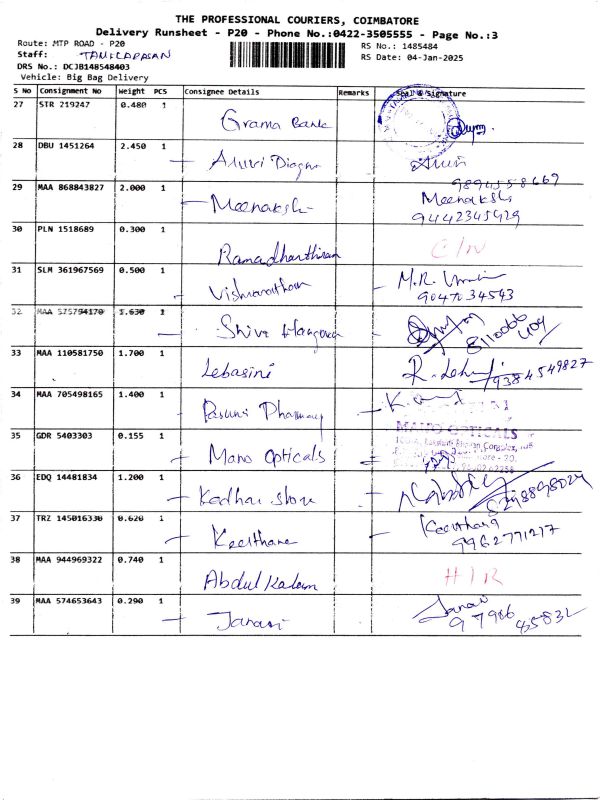 THE PROFESSIONAL COURIERS, COIMBATORE
Delivery Runsheet - P20 - Phone No.:0422-3505555 - Page No.:3
Route: MTP ROAD - P20 RS No.: 1485484
Staff: TAMILARASAN RS Date: 04-Jan-2025
DRS No.: DCJB148548403
Vehicle: Big Bag Delivery
S No Consignment No Weight PCS Consignee Details Remarks Seal & Signature
27 STR 219247 0.480 1 Grama Bank
28 DBU 1451264 2.450 1 Aruvi Aruvi
9894558669
29 MAA 868843827 2.000 1 Meenakshi Meenakshi
9442345929
30 PLN 1518689 0.300 1
31 SLM 361967569 0.500 1 Vishwanathan M.R.
9047034543
32 MAA 575794170 1.630 1 Shiva
33 MAA 110581750 1.700 1 Lebasini
9384549827
34 MAA 705498165 1.400 1 Pasumi Pharmacy
35 GDR 5403303 0.155 1 Mano Opticals MANO OPTICALS
36 EDQ 14481834 1.200 1 Kadhar store
37 TRZ 145016330 0.620 1 Keerthana Keerthana
9962771217
38 MAA 944969322 0.740 1 Abdul Kalam
39 MAA 574653643 0.290 1 Janani
97986 45832